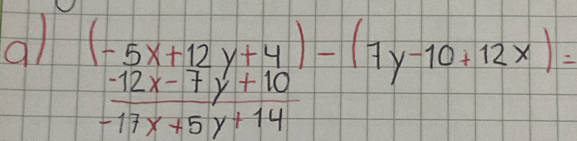 a) (-5x+12y+4)-(7y-10+12x)=
-12x-7y+10
-17x+5y+14